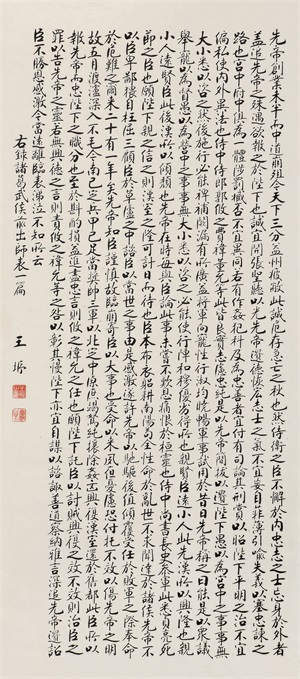 先帝創業未半而中道崩殂今天下三分益州疲敝此誠危急存亡之秋也然侍衛之臣不懈於內忠志之士忘身於外者
蓋追先帝之殊遇欲報之於陛下也誠宜開張聖聽以光先帝遺德恢宏志士之氣不宜妄自菲薄引喻失義以塞忠諫之
路也宮中府中俱為一體陟罰臧否不宜異同若有作姦犯科及為忠善者宜付有司論其刑賞以昭陛下平明之治不宜
偏私使內外異法也侍中侍郎郭攸之費禕董允等此皆良實志慮忠純是以先帝簡拔以遺陛下愚以為宮中之事事無
大小悉以咨之然後施行必能裨補闕漏有所廣益將軍向寵性行淑均曉暢軍事試用於昔日先帝稱之曰能是以眾議
舉寵為督愚以為營中之事事無大小悉以咨之必能使行陣和穆優劣得所也親賢臣遠小人此先漢所以興隆也親
小人遠賢臣此後漢所以傾頹也先帝在時每與臣論此事未嘗不歎息痛恨於桓靈也侍中尚書長史參軍此悉貞亮死
節之臣也願陛下親之信之則漢室之隆可計日而待也臣本布衣躬耕南陽苟全性命於亂世不求聞達於諸侯先帝不
以臣卑鄙猥自枉屈三顧臣於草廬之中諮臣以當世之事由是感激遂許先帝以馳驅後值傾覆受任於敗軍之際奉命
於危難之間爾來二十有一年矣先帝知臣謹慎故臨崩寄臣以大事也受命以來夙夜憂慮恐付託不效以傷先帝之明
故五月渡瀘深入不毛今南已定兵甲已足當獎帥三軍以北定中原庶竭駑鈍攘除姦凶興復漢室還於舊都此臣所以
報先帝而忠陛下之職分也至於斟酌損益進盡忠言則攸之禕允之任也願陛下託臣以討賊興復之效不效則治臣之
罪以告先帝之靈若無興德之言則責攸之禕允等之咎以彰其慢陛下亦宜自謀以諮諏善道察納雅言深追先帝遺詔
臣不勝恩感激今當遠離臨表涕泣不知所云
右錄諸葛武侯前出師表一篇
王